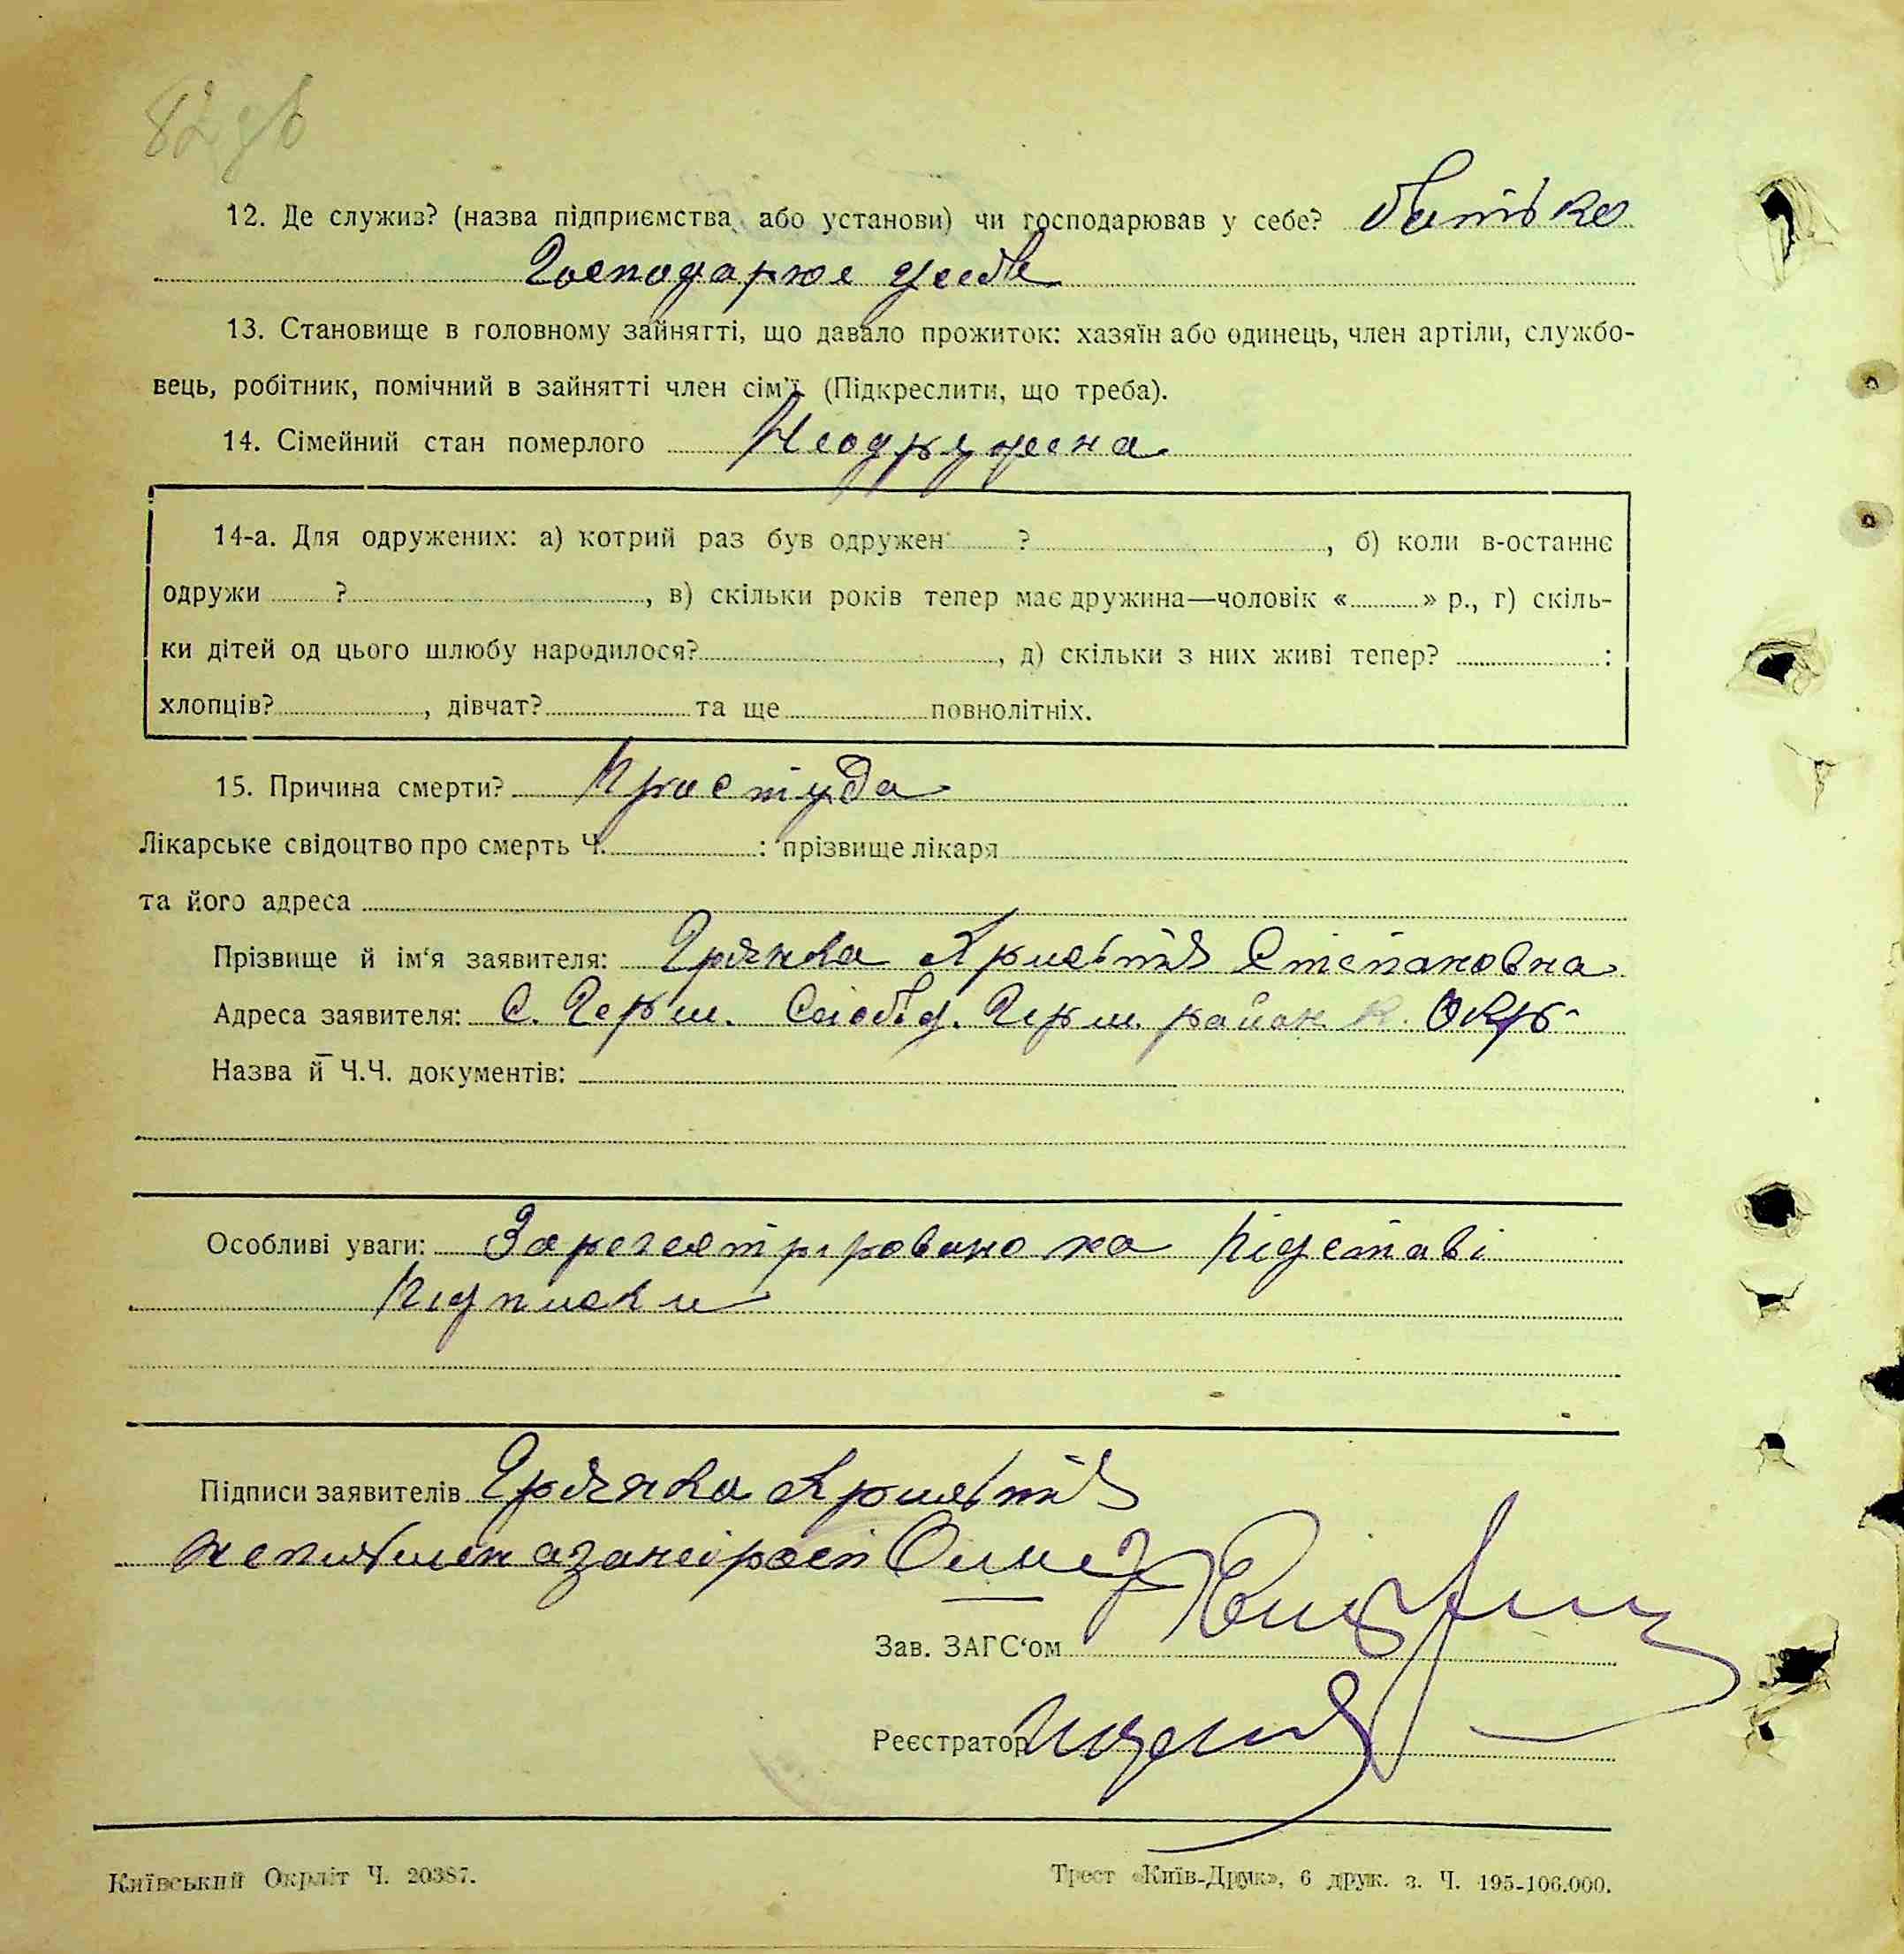 82 зв
12. Де служив? (назва підприємства або установи) чи господарював у себе? батько
Господарює усебе
13. Становище в головному зайнятті, що давало прожиток: хазяїн або одинець, член артіли, службо-
вець, робітник, помічний в зайнятті член сім'ї (Підкреслити, що треба).
14. Сімейний стан померлого Неодружена
14-а. Для одружених: а) котрий раз був одружен ? , б) коли в-останнє
одружи ? , в) скільки років тепер має дружина—чоловік « » р., г) скіль-
ки дітей од цього шлюбу народилося? , д) скільки з них живі тепер? :
хлопців? , дівчат? та ще повнолітніх.
15. Причина смерти? Простуда
Лікарське свідоцтво про смерть Ч. : прізвище лікаря
та його адреса
Прізвище й ім'я заявителя: Христя Степановна
Адреса заявителя: С. Герм. Слобід. Герм. район К. Окр
Назва й Ч.Ч. документів:
Особливі уваги: Зарегестріровано на підставі
Підписки
Підписи заявителів Христя
Зав. ЗАГС'ом
Реєстратор
Київський Окрліт Ч. 20387.
Трест «Київ-Друк», 6 друк. з. Ч. 195-106.000.